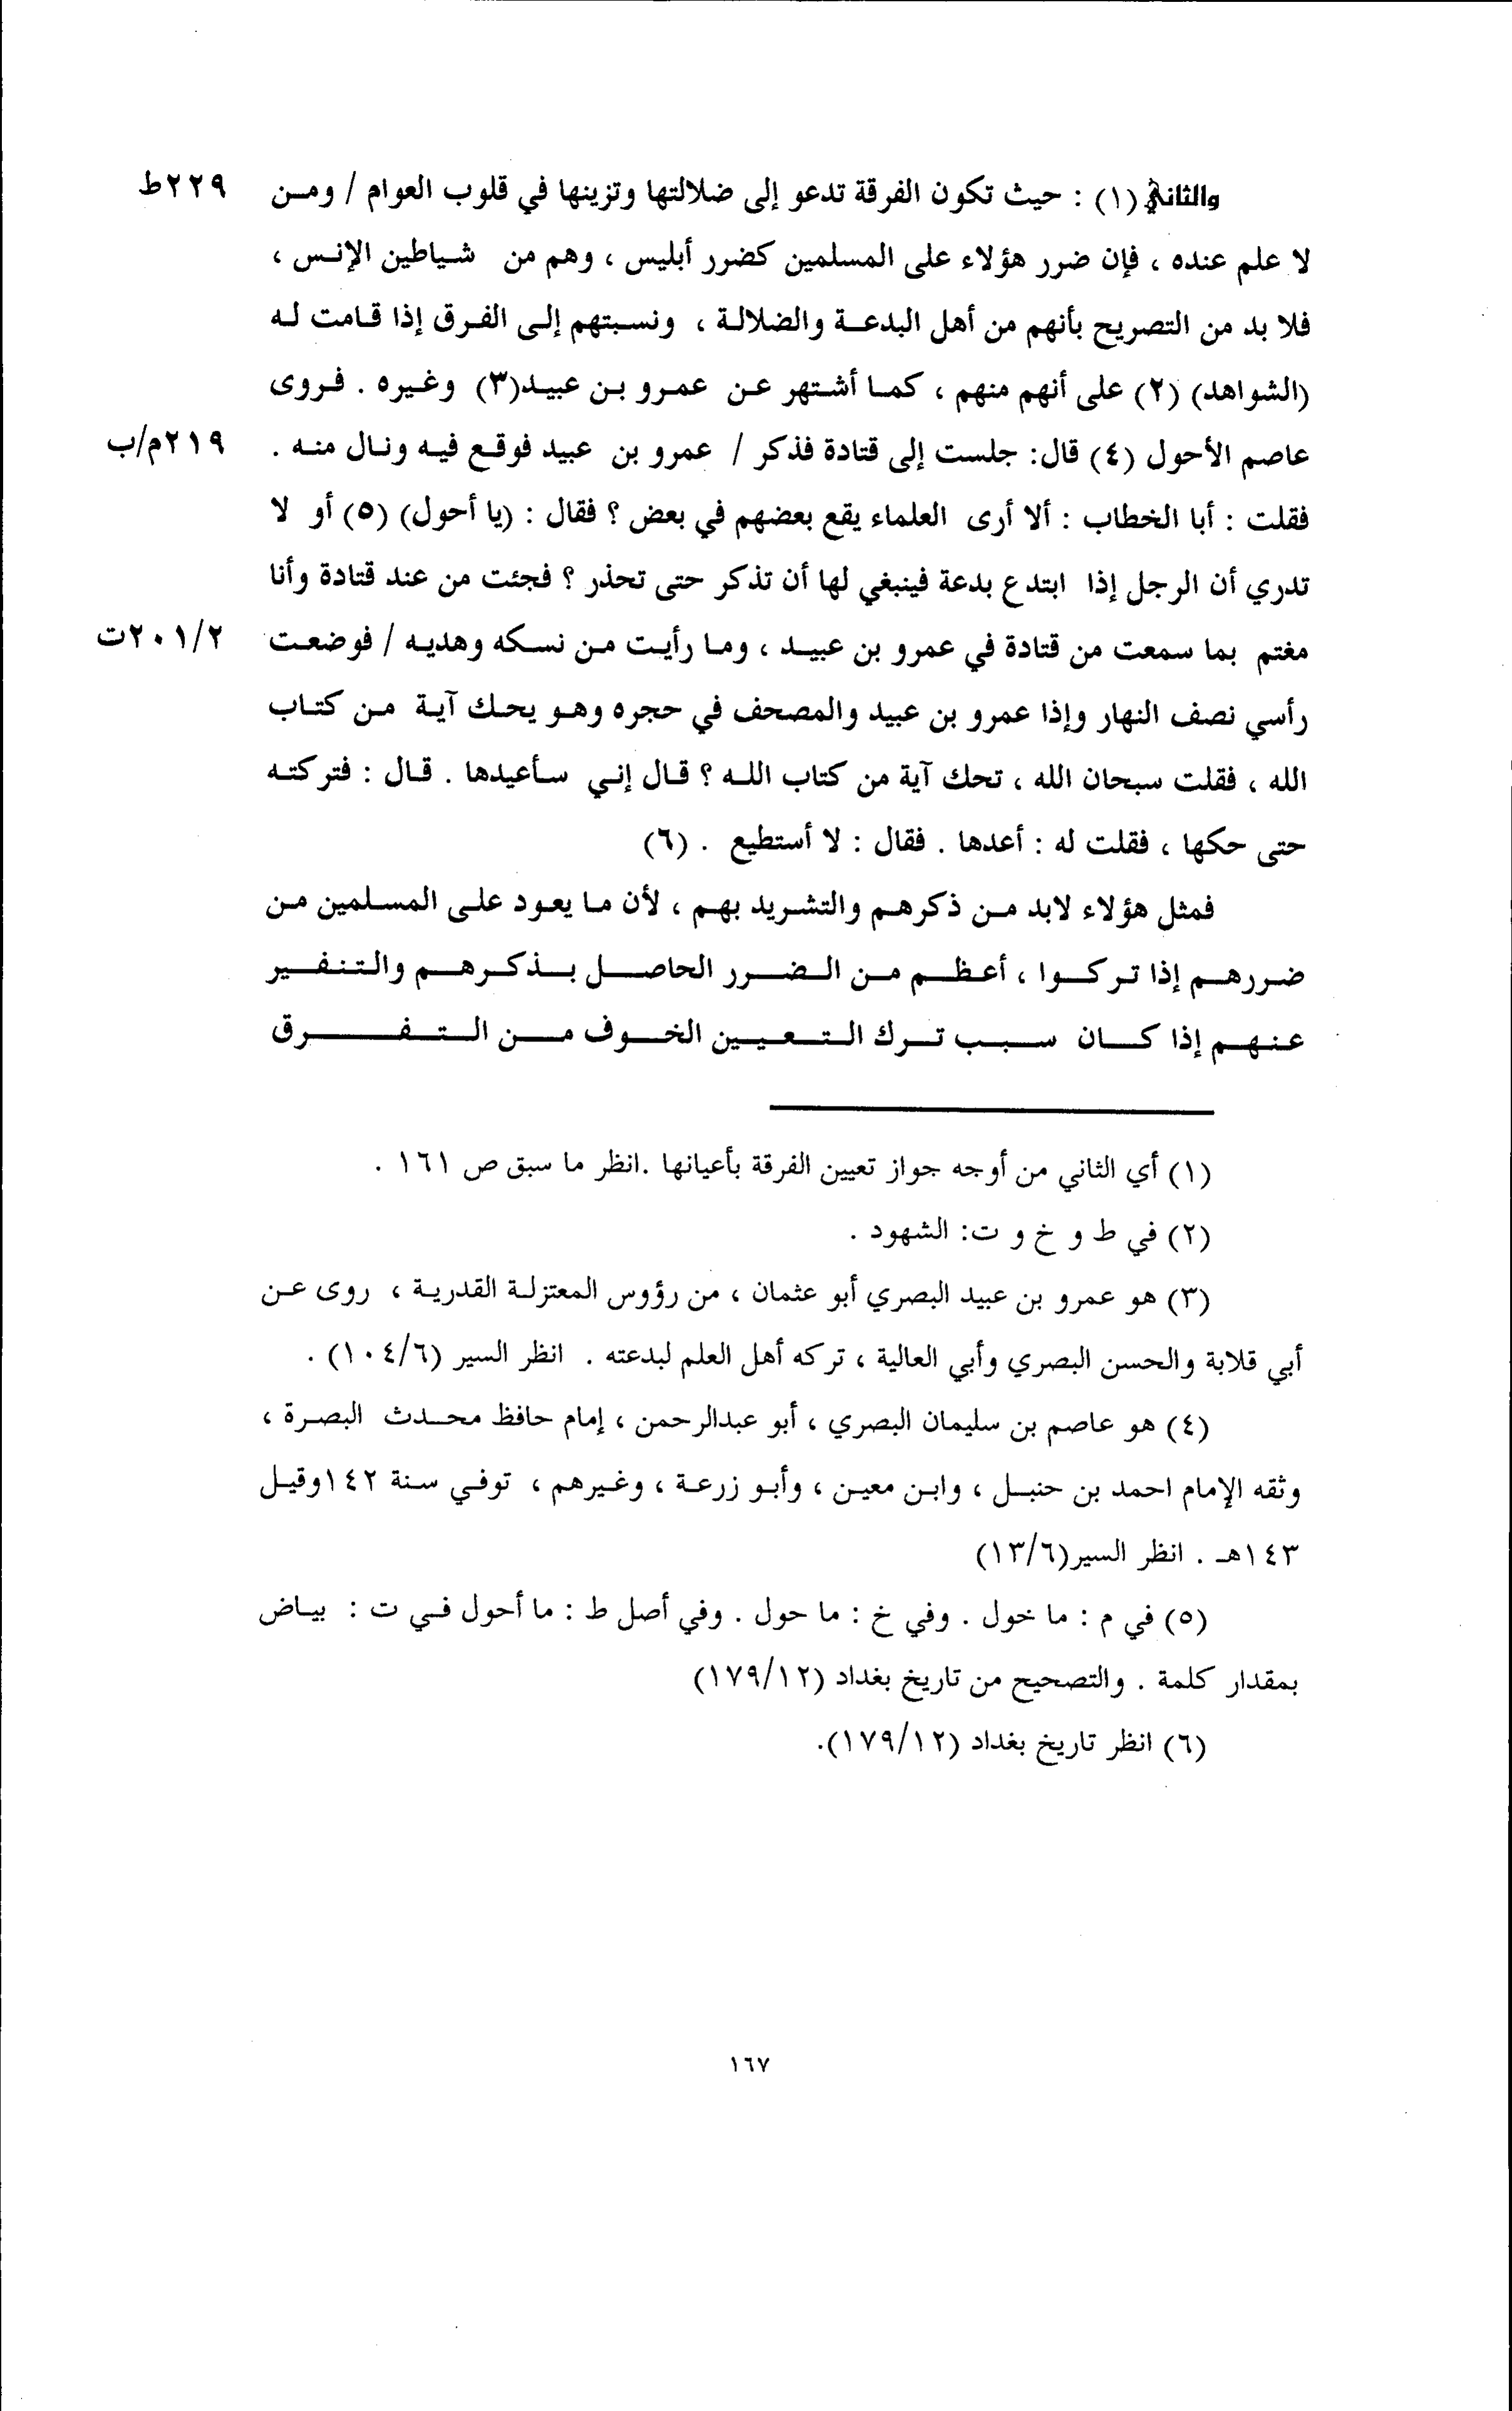 والثاني (١) : حيث تكون الفرقة تدعو إلى ضلالتها وتزينها في قلوب العوام / ومن ٢٢٩ط
لا علم عنده ، فإن ضرر هؤلاء على المسلمين كضرر أبليس ، وهم من شياطين الإنس ،
فلا بد من التصريح بأنهم من أهل البدعة والضلالة ، ونسبتهم إلى الفرق إذا قامت له
(الشواهد) (٢) على أنهم منهم ، كما أشتهر عن عمرو بن عبيد(٣) وغيره . فروى
عاصم الأحول (٤) قال: جلست إلى قتادة فذكر / عمرو بن عبيد فوقع فيه ونال منه . ٢١٩م/ب
فقلت : أبا الخطاب : ألا أرى العلماء يقع بعضهم في بعض ؟ فقال : (يا أحول) (٥) أو لا
تدري أن الرجل إذا ابتدع بدعة فينبغي لها أن تذكر حتى تحذر ؟ فجئت من عند قتادة وأنا
مغتم بما سمعت من قتادة في عمرو بن عبيد ، وما رأيت من نسكه وهديه / فوضعت ٢٠١/٢ت
رأسي نصف النهار وإذا عمرو بن عبيد والمصحف في حجره وهو يحك آية من كتاب
الله ، فقلت سبحان الله ، تحك آية من كتاب الله ؟ قال إني سأعيدها . قال : فتركته
حتى حكها ، فقلت له : أعدها . فقال : لا أستطيع . (٦)
فمثل هؤلاء لابد من ذكرهم والتشريد بهم ، لأن ما يعود على المسلمين من
ضررهم إذا تركوا ، أعظم من الضرر الحاصل بذكرهم والتنفير
عنهم إذا كان سبب ترك التعيين الخوف من التفرق
(١) أي الثاني من أوجه جواز تعيين الفرقة بأعيانها .انظر ما سبق ص ١٦١ .
(٢) في ط و خ و ت: الشهود .
(٣) هو عمرو بن عبيد البصري أبو عثمان ، من رؤوس المعتزلة القدرية ، روى عن
أبي قلابة والحسن البصري وأبي العالية ، تركه أهل العلم لبدعته . انظر السير (١٠٤/٦) .
(٤) هو عاصم بن سليمان البصري ، أبو عبدالرحمن ، إمام حافظ محدث البصرة ،
وثقه الإمام احمد بن حنبل ، وابن معين ، وأبو زرعة ، وغيرهم ، توفي سنة ١٤٢وقيل
١٤٣هـ . انظر السير(١٣/٦)
(٥) في م : ما خول . وفي خ : ما حول . وفي أصل ط : ما أحول في ت : بياض
بمقدار كلمة . والتصحيح من تاريخ بغداد (١٧٩/١٢)
(٦) انظر تاريخ بغداد (١٧٩/١٢).
١٦٧